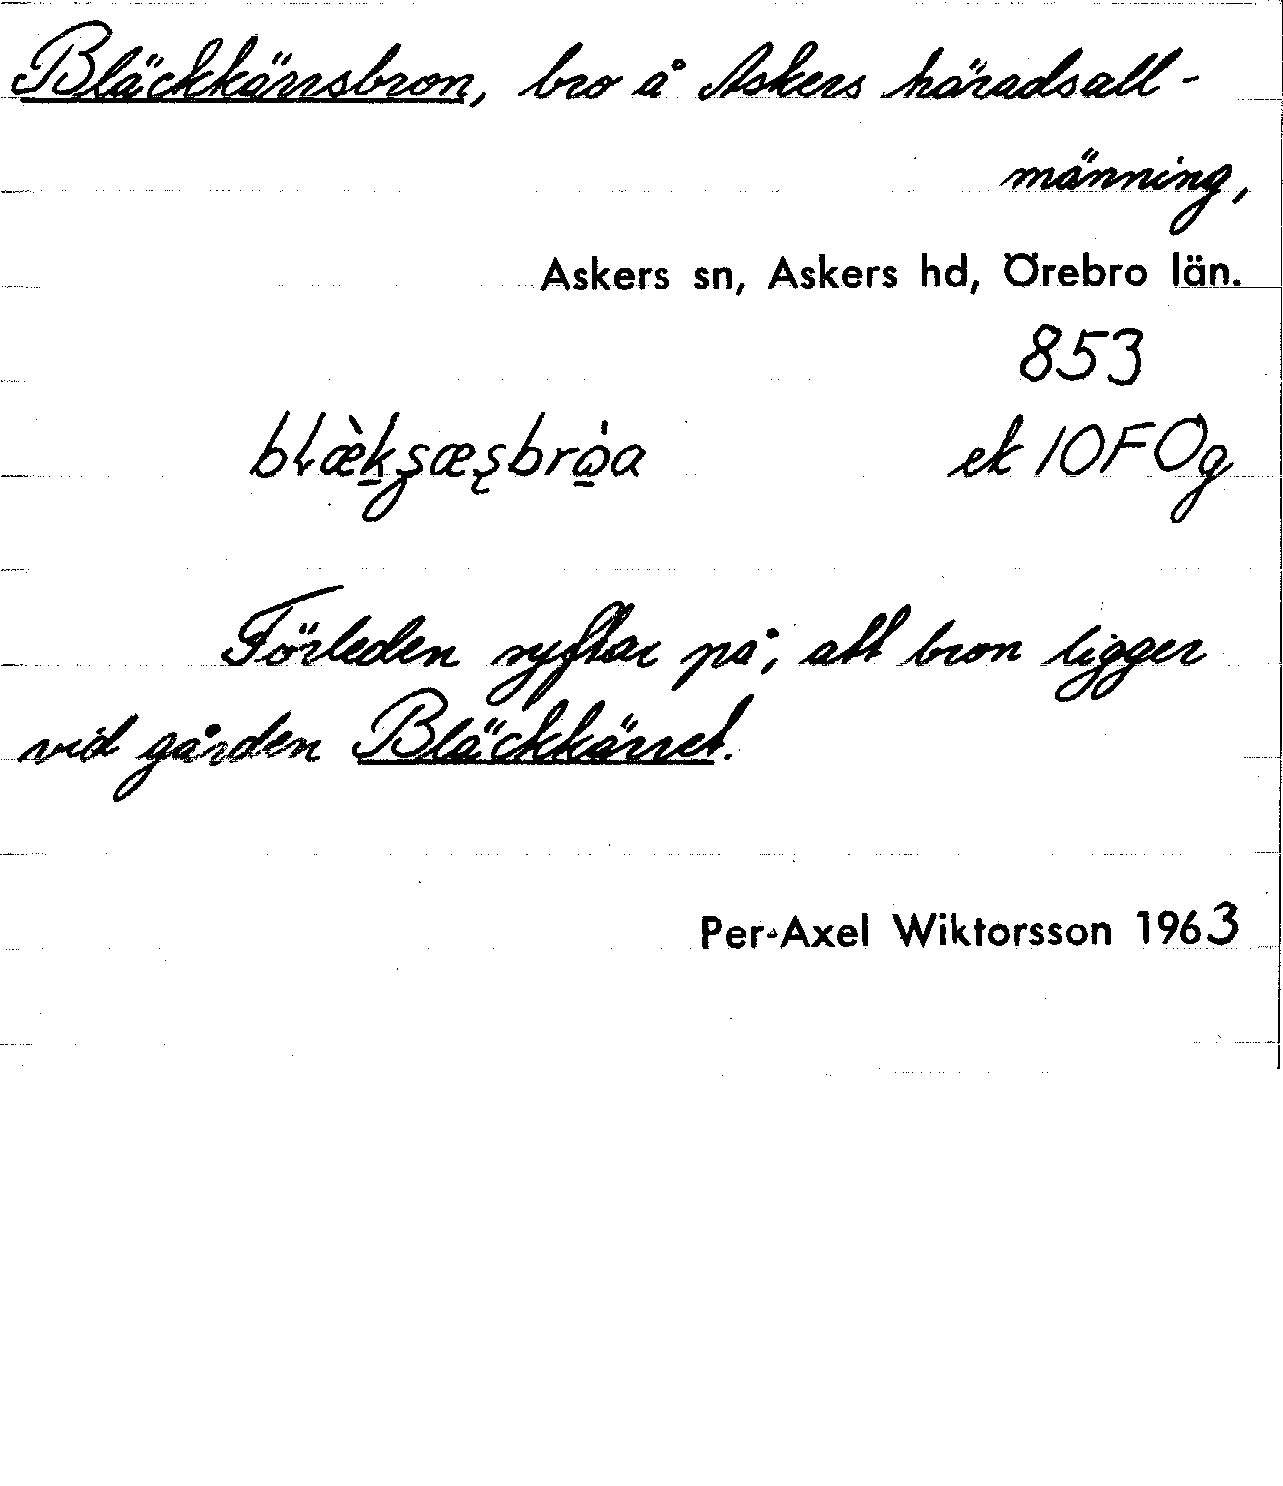 Bläckkärrsbron, bro å Askers häradsall-
männing,
Askers sn, Askers hd, Örebro län.
853
ek 10F Ög
Förleden syftar på, att bron ligger
vid gården Bläckkärret.
Per-Axel Wiktorsson 1963